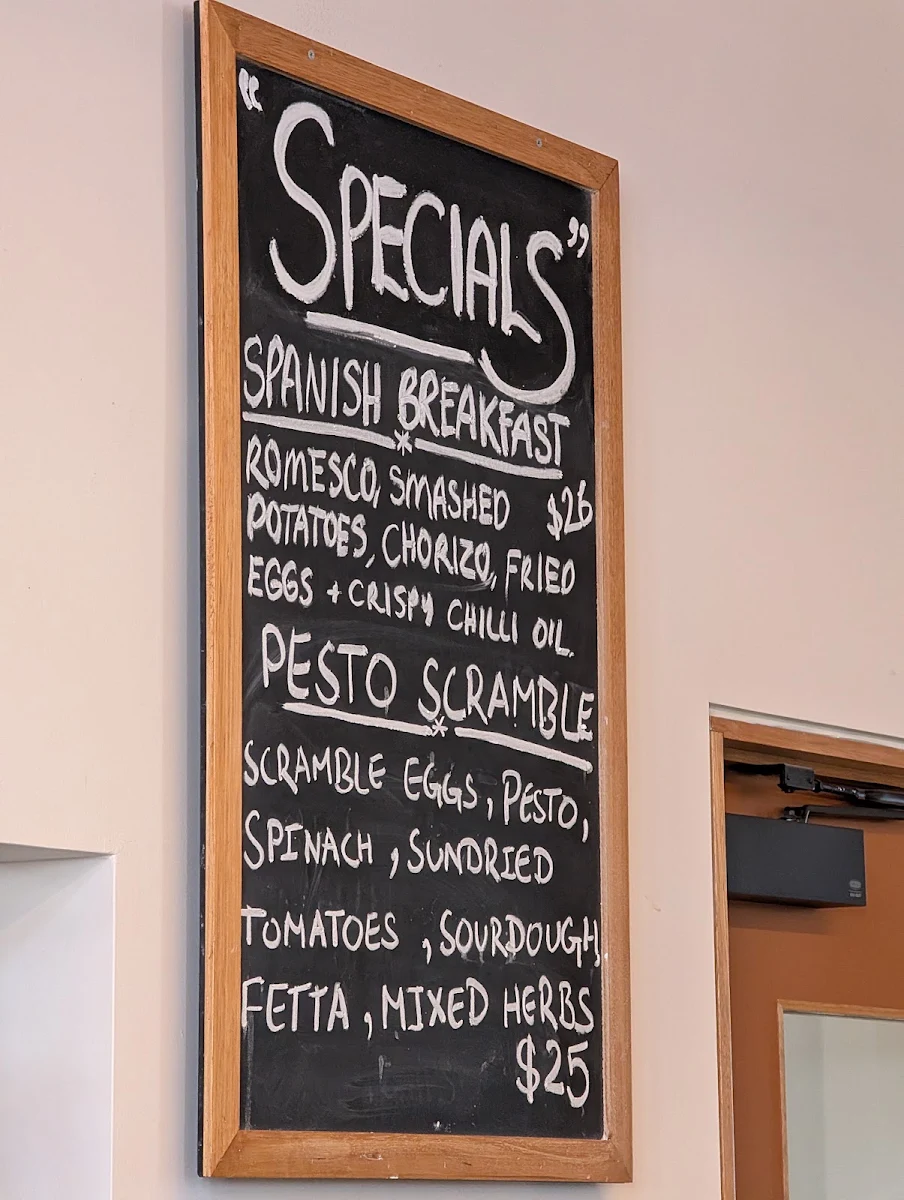 “SPECIALS”
SPANISH BREAKFAST
ROMESCO, SMASHED $26
POTATOES, CHORIZO, FRIED
EGGS + CRISPY CHILLI OIL.
PESTO SCRAMBLE
SCRAMBLE EGGS, PESTO,
SPINACH, SUNDRIED
TOMATOES, SOURDOUGH,
FETTA, MIXED HERBS
$25